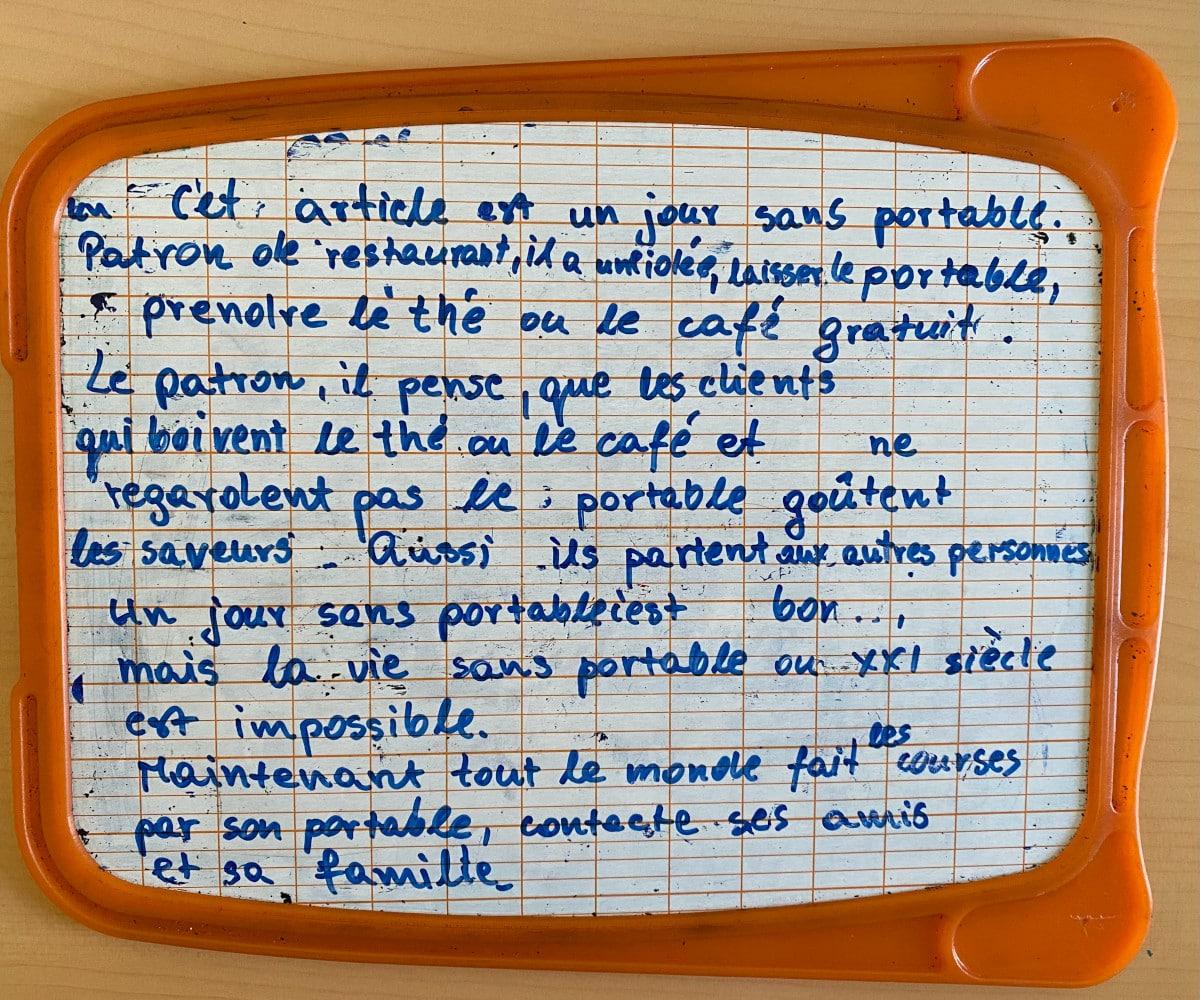 C'ét article est un jour sans portable.
Patron de restaurant, il a une idée, laisser le portable,
prendre le thé ou le café gratuit.
Le patron, il pense, que les clients
qui boivent le thé ou le café et ne
regardent pas le portable goûtent
les saveurs. Aussi ils partent aux autres personnes
Un jour sans portable est bon...,
mais la vie sans portable ou XXI siècle
est impossible.
Maintenant tout le monde fait les courses
par son portable, contacte ses amis
et sa famille